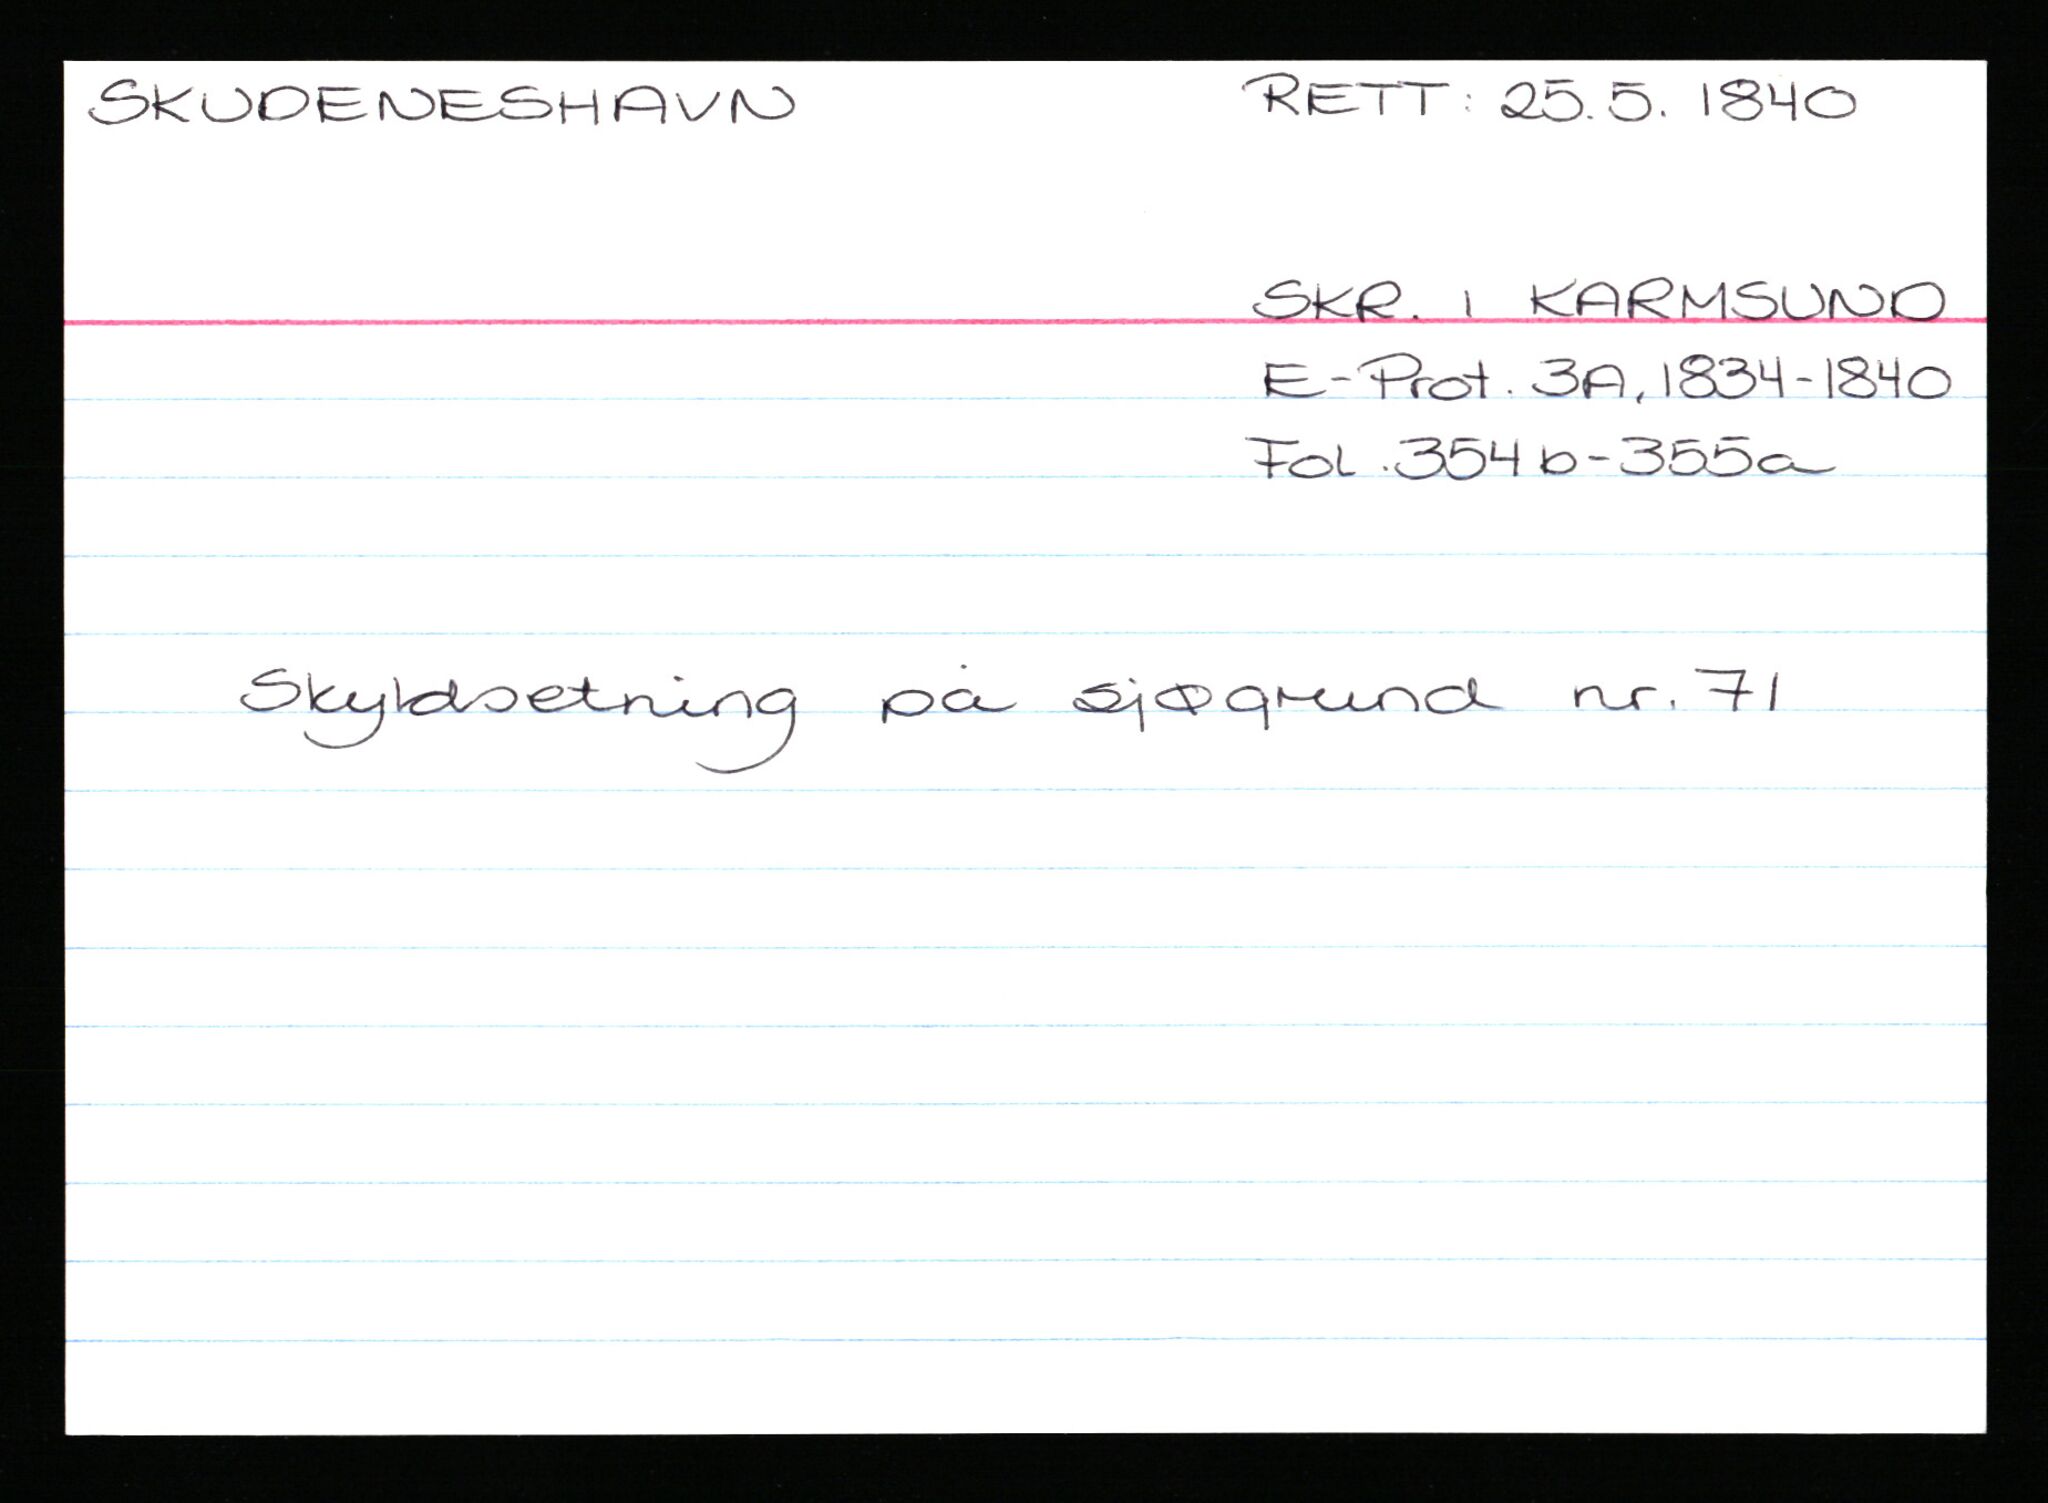 SKUDENESHAVN
RETT: 25.5.1840
SKR. I KARMSUND
E-Prot. 3A, 1834-1840
Fol. 354b-355a
Skyldsetning på sjøgrund nr. 71